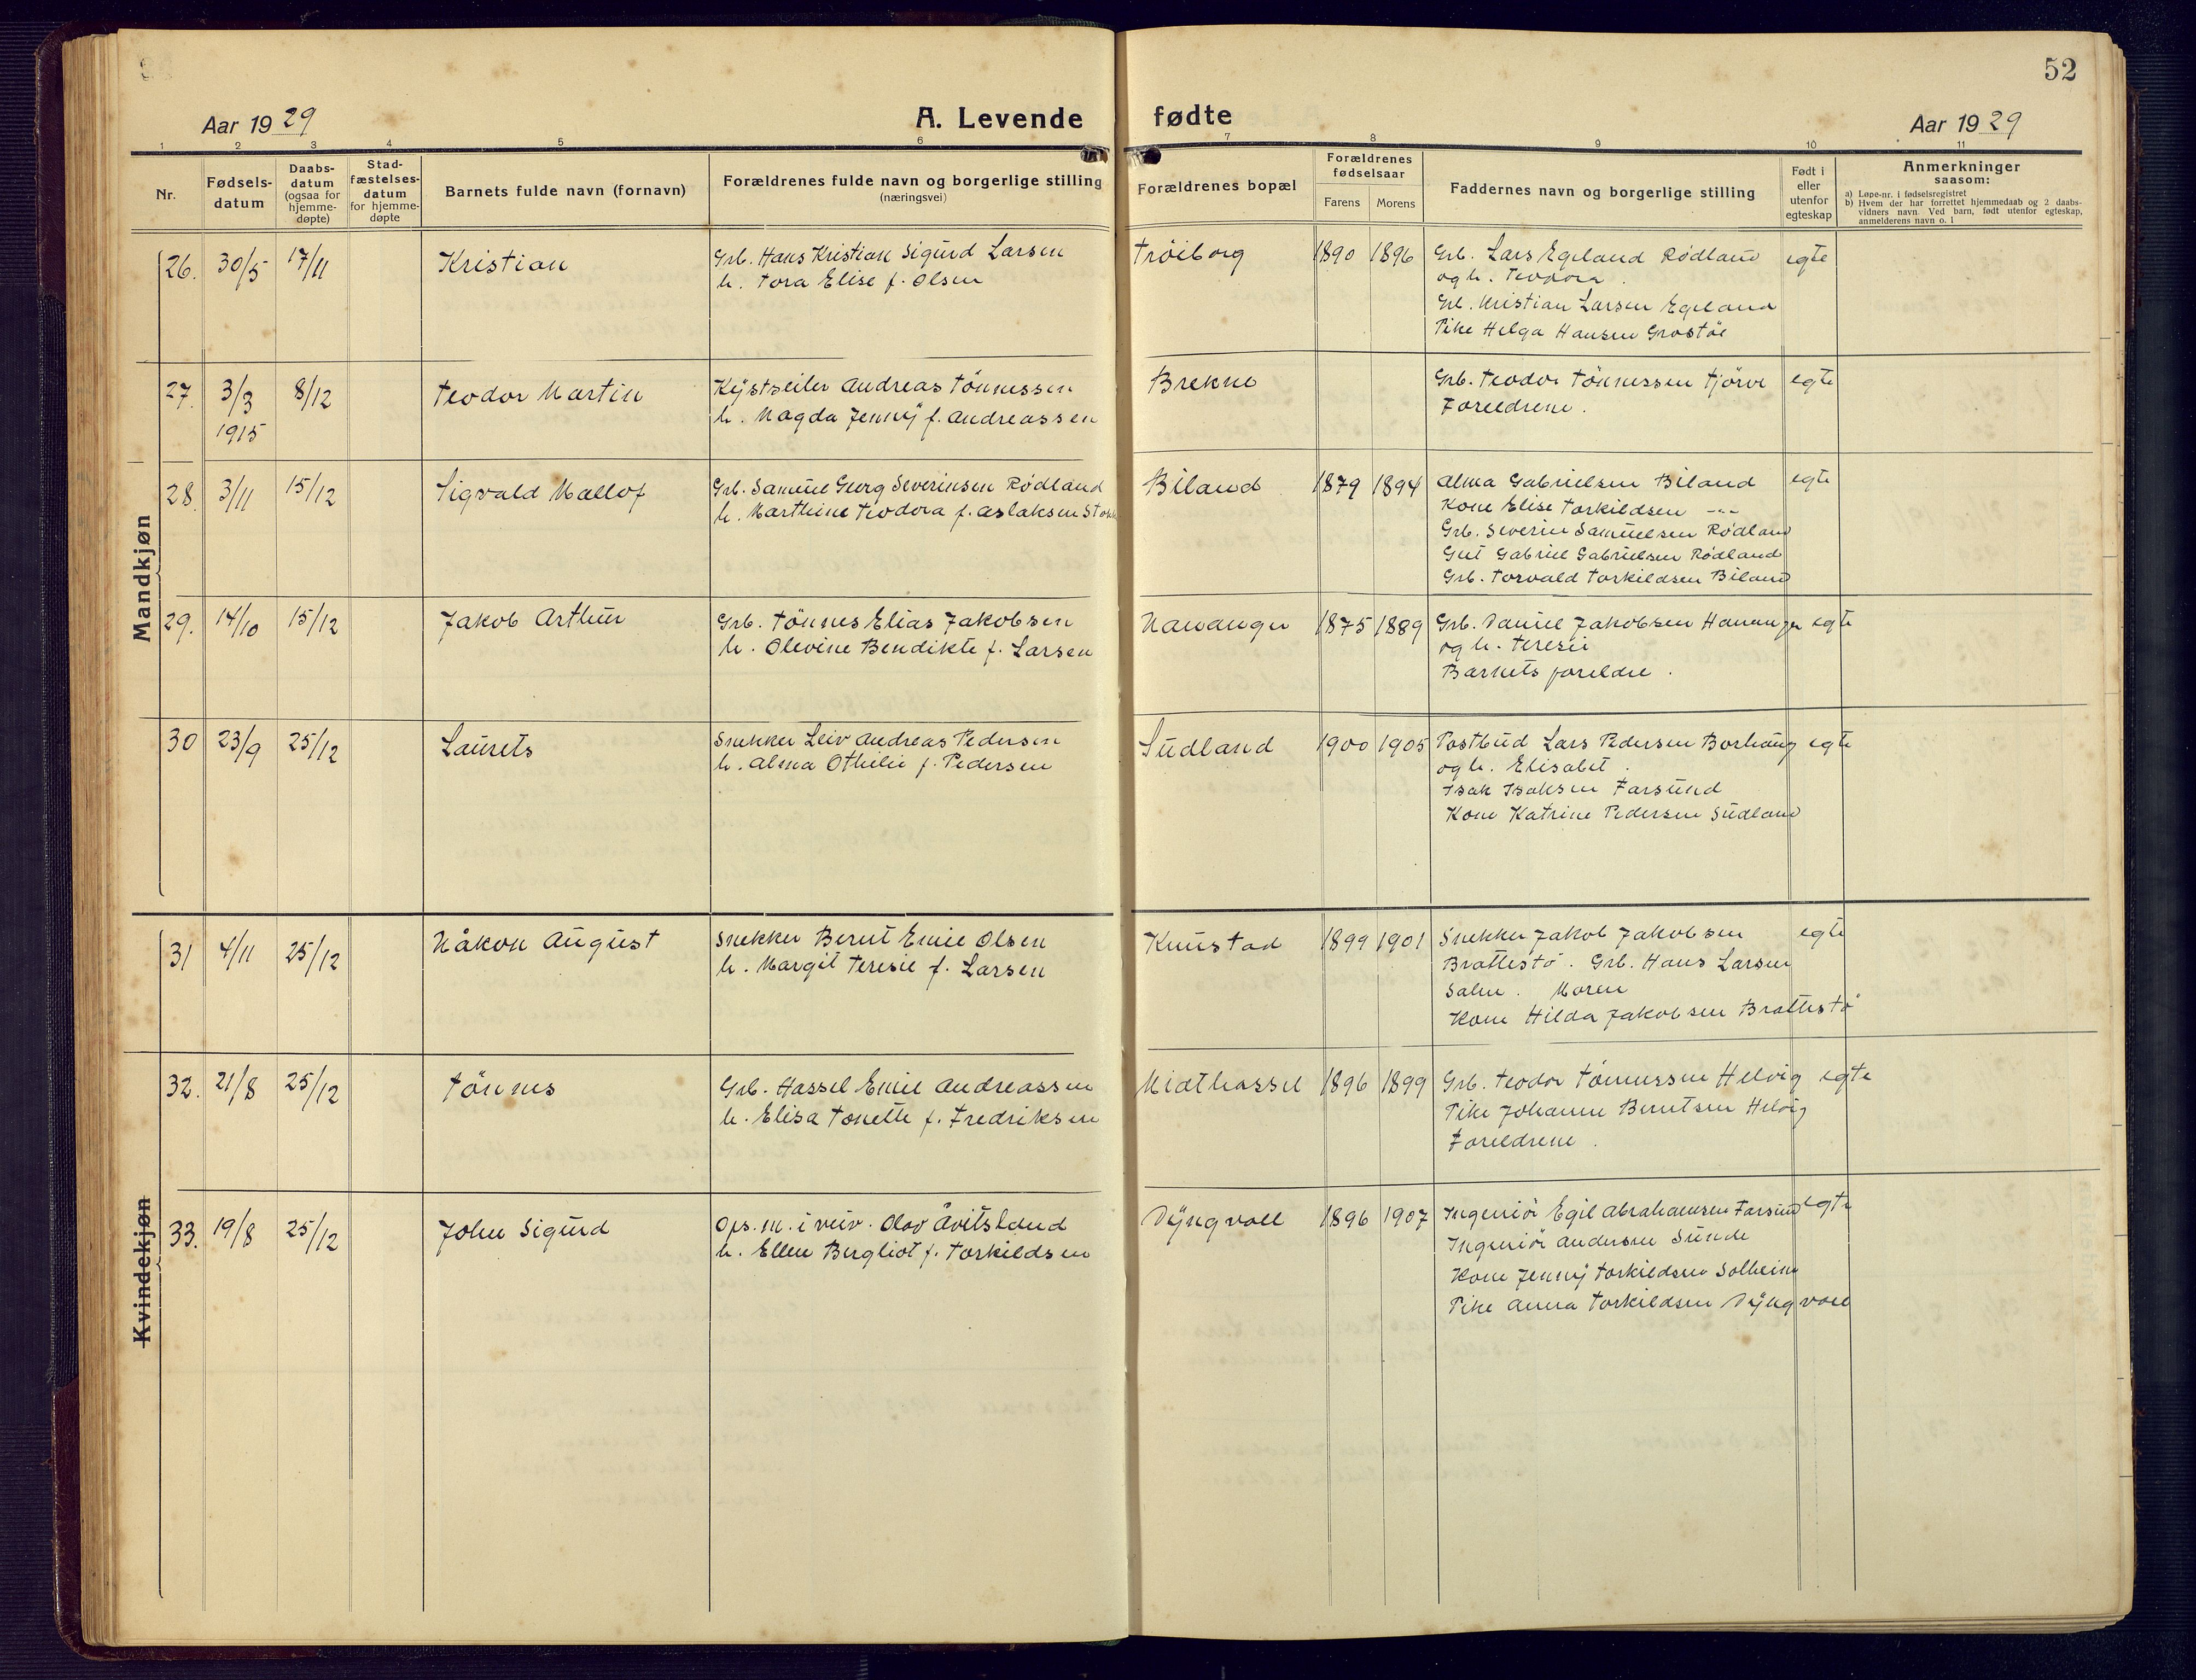 52
Aar 1929
A. Levende fødte
Aar 1929
1 2 3 4 5 6 7 8 9 10 11
Nr.
Fødsels-
datum
Daabs-
datum
(ogsaa for
hjemme-
døpte)
Stad-
fæstelses-
datum
for hjemme-
døpte
Barnets fulde navn (fornavn)
Forældrenes fulde navn og borgerlige stilling
(næringsvei)
Forældrenes bopæl
Forældrenes
fødselsaar
Farens Morens
Faddernes navn og borgerlige stilling
Født i
eller
utenfor
egteskap
Anmerkninger
saasom:
a) Løpe-nr. i fødselsregistret
b) Hvem der har forrettet hjemmedaab og 2 daabs-
vidners navn. Ved barn, født utenfor egteskap,
anmelderens navn o. l
Mandkjøn
26. 30/5 17/11 Kristian
Grb. Hans Kristian Sigurd Larsen
h. Tora Elise f. Olsen
Tröiborg 1890 1896
Grb. Lars Egeland Rødland
og h. Teodora.
Grb. Kristian Larsen Egeland
Pike Helga Hansen Grostøl
egte
27. 3/3 1915 8/12 Teodor Martin
Kystseiler Andreas Tönnessen
h. Magda Jenny f. Andreassen
Brekne
Grb. Teodor Tönnessen Tjörve
Foreldrene.
egte
28. 3/11 15/12 Sigvald Mallof
Grb. Samuel Georg Severinsen Rødland
h. Marthine Teodora f. Aslaksen
Biland 1879 1894
Alma Gabrielsen Biland
Kone Elise Torkildsen -"-
Grb. Severin Samuelsen Rødland
Gut Gabriel Gabrielsen Rødland
Grb. Torvald Torkildsen Biland
egte
29. 14/10 15/12 Jakob Arthur
Grb. Tönnes Elias Jakobsen
h. Olevine Bendikte f. Larsen
Hananger 1875 1889
Grb. Daniel Jakobsen Hananger
og h. Teresie
Barnets foreldre.
egte
30 23/9 25/12 Laurets
Snekker Leiv Andreas Pedersen
h. Alma Othelie f. Pedersen
Sudland 1900 1905
Postbud Lars Pedersen Borhaug
og h. Elisabet.
Isak Isaksen Farsund
Kone Katrine Pedersen Sudland
egte
31 4/11 25/12 Håkon August
Snekker Bernt Emil Olsen
h. Margit Teresie f. Larsen
Knustad 1899 1901
Snekker Jakob Jakobsen
Brattestö. Grb. Hans Larsen
Salen. Moren
Kone Hilda Jakobsen Brattestö
egte
Kvindekjøn
32. 21/8 25/12 Tönnes
Grb. Hassel Emil Andreassen
h. Elisa Tonette f. Fredriksen
Midthassel 1896 1899
Grb. Teodor Tönnessen Helvig
Pike Johanne Berntsen Helvig
Foreldrene.
egte
33. 19/8 25/12 John Sigurd
Ops.m. i veiv. Olav Åvitsland
h. Ellen Bergliot f. Torkildsen
Dyngvoll 1896 1907
Ingeniör Egil Abrahamsen Farsund
Ingeniör Andersen Sunde
Kone Jenny Torkildsen Solheim
Pike Anna Torkildsen Dyngvoll
egte